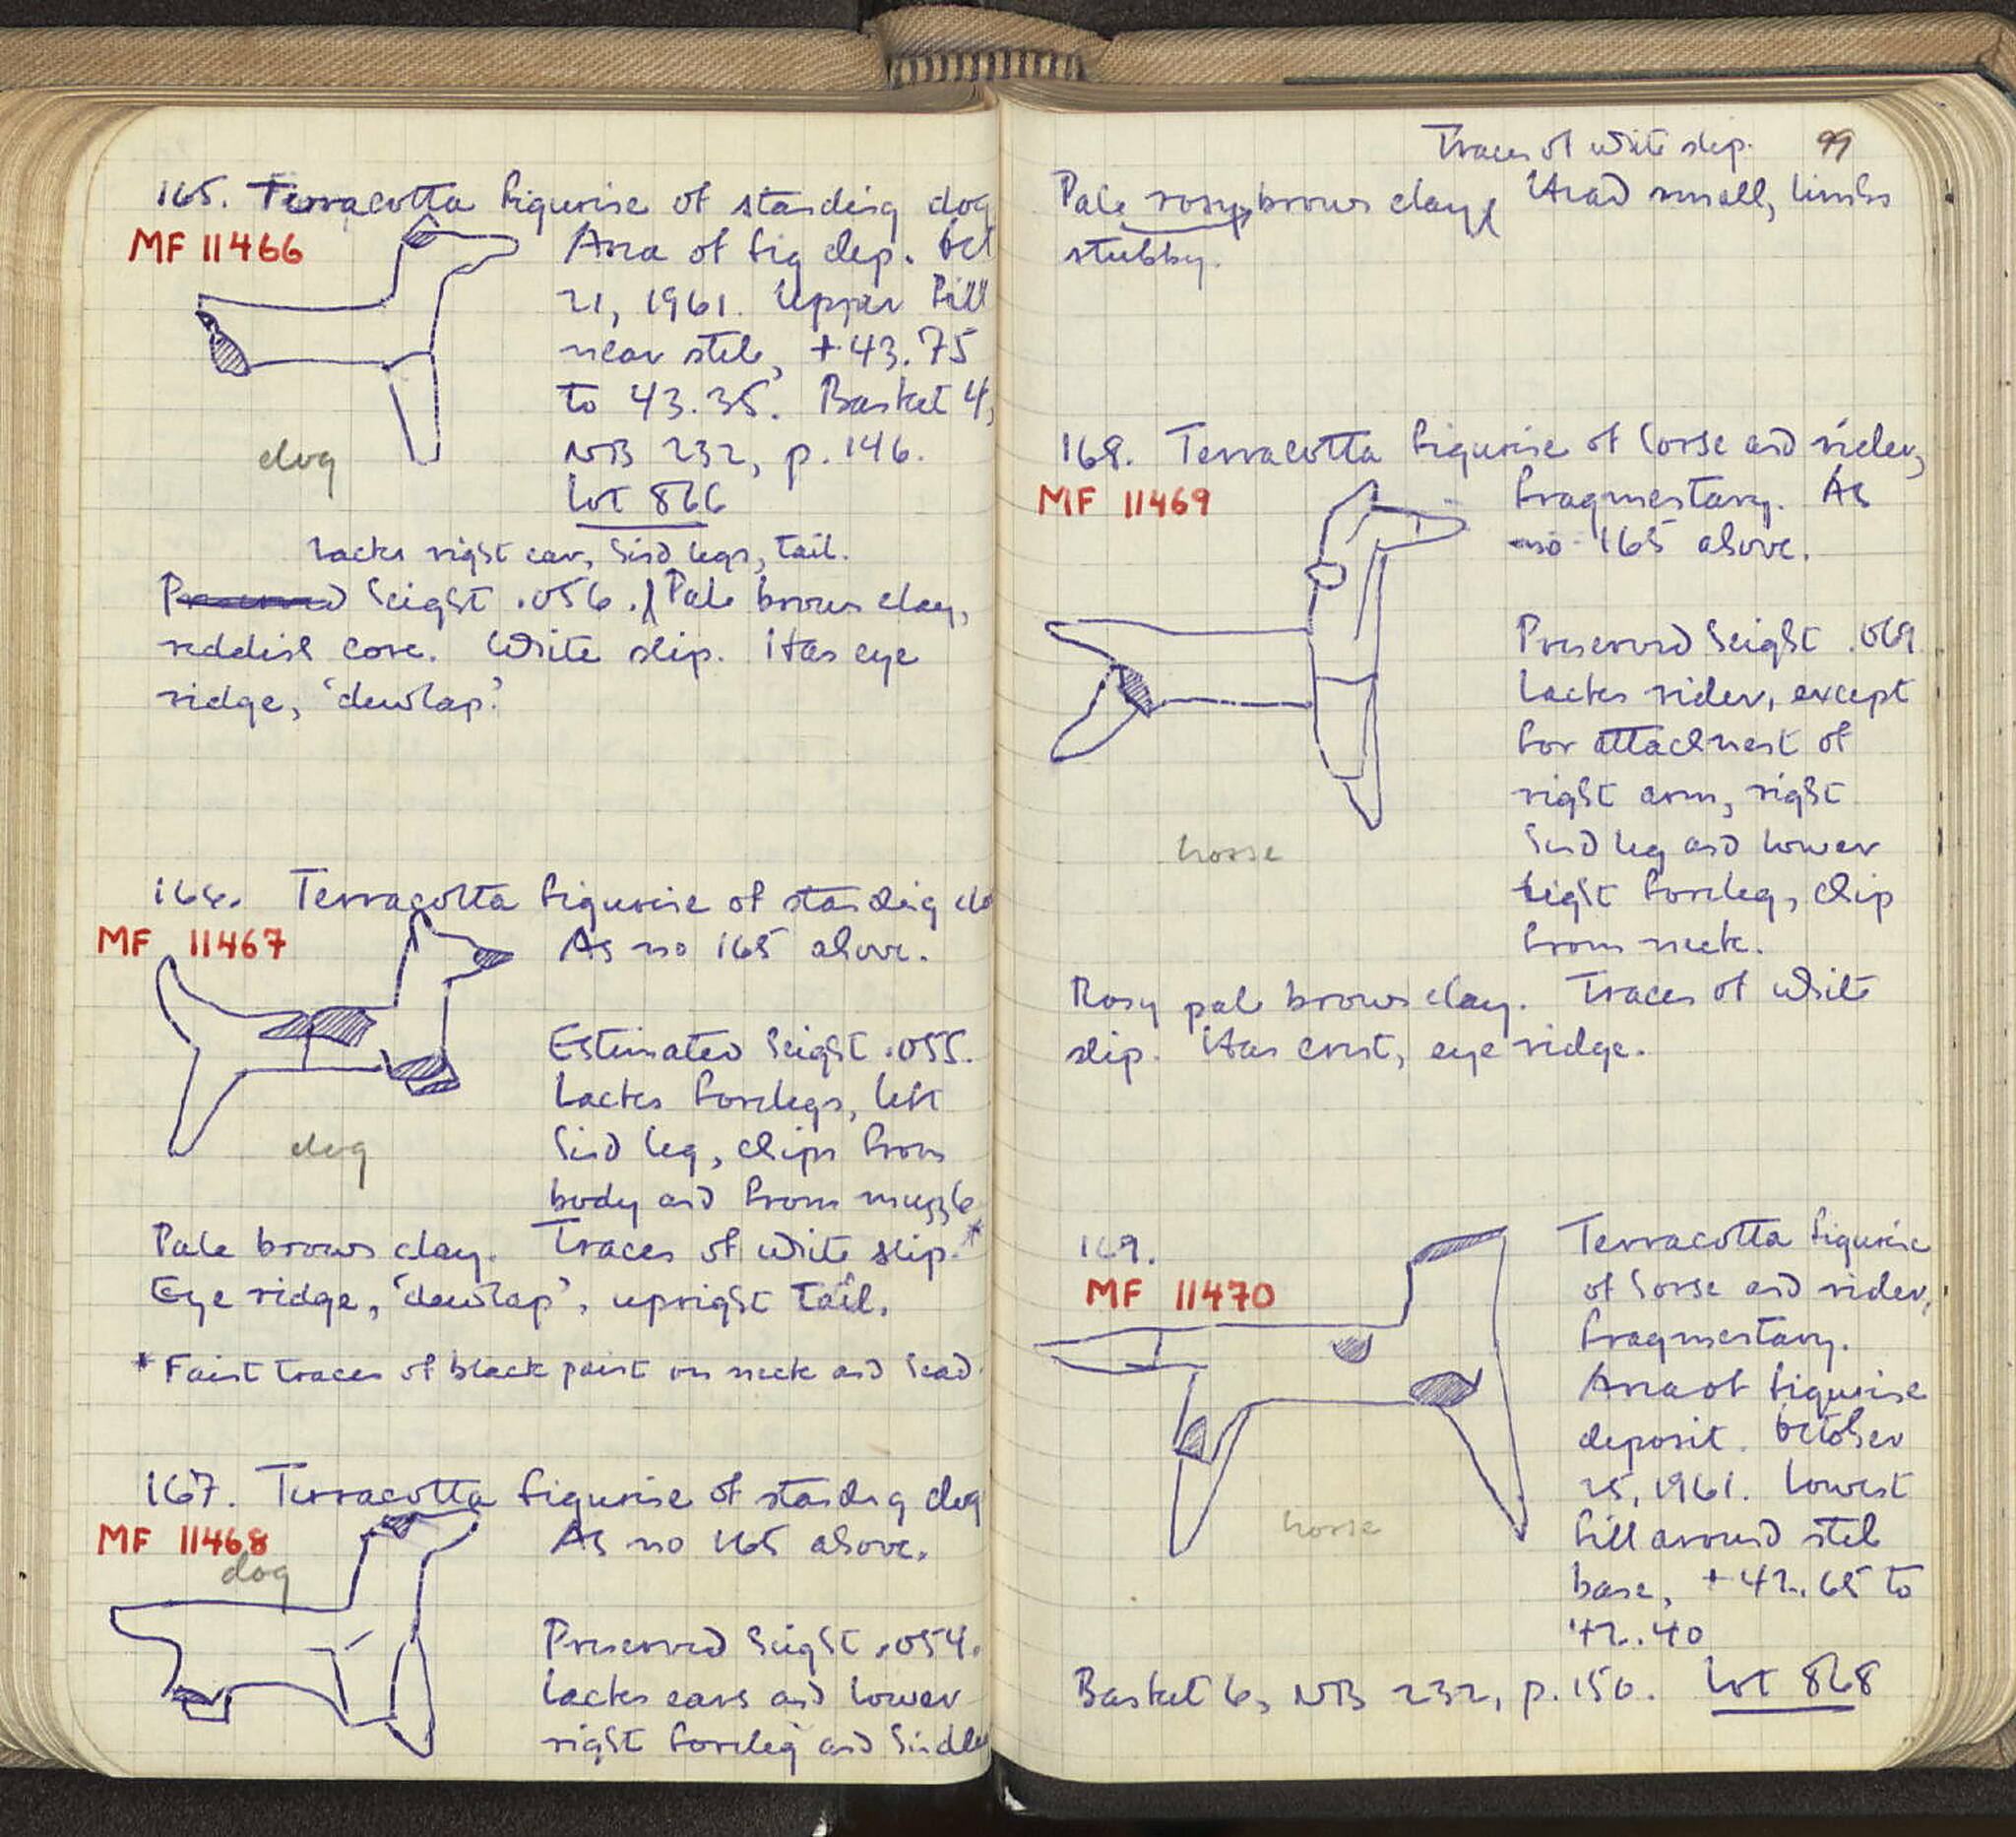 165. Terracotta figurine of standing dog
MF 11466
Area of fig dep. Oct
21, 1961. Upper fill
near stele, +43.75
to 43.35. Basket 4,
NB 232, p. 146.
Lot 866
dog
Lacks right ear, hind legs, tail.
Preserved height .056. Pale brown clay,
reddish core. White slip. Has eye
ridge, 'dewlap'.
166. Terracotta figurine of standing do
MF 11467
As no 165 above.
Estimated height .055.
Lacks forelegs, left
hind leg, chips from
body and from muzzle.
dog
Pale brown clay. Traces of white slip.*
Eye ridge, 'dewlap', upright tail.
* Faint traces of black paint on neck and head.
167. Terracotta figurine of standing dog
MF 11468
As no 165 above.
dog
Preserved height .054.
Lacks ears and lower
right foreleg and hindleg
99
Traces of white slip.
Pale rosy brown clay. Head small, limbs
stubby.
168. Terracotta figurine of horse and rider,
MF 11469
fragmentary. As
no 165 above.
Preserved height .069
Lacks rider, except
for attachment of
right arm, right
hind leg and lower
right foreleg, chip
from neck.
horse
Rosy pale brown clay. Traces of white
slip. Has crest, eye ridge.
169.
MF 11470
Terracotta figurine
of horse and rider,
fragmentary.
Area of figurine
deposit. October
25, 1961. Lowest
fill around stele
base, +42.65 to
42.40
horse
Basket 6, NB 232, p. 150. Lot 868